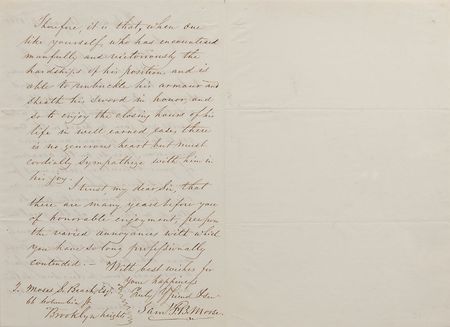 Therefore, it is that, when one
like yourself, who has encountered
manfully and victoriously the
hardships of his position, and is
able to unbuckle his armour and
sheath his sword in honor, and
so to enjoy the closing hours of his
life in well earned ease, there
is no generous heart but must
cordially sympathize with him in
his joy.
I trust my dear Sir, that
there are many years before you
of honorable enjoyment, free from
the varied annoyances with which
you have so long professionally
contended. — With best wishes for
your happiness
Truly Yr friend & Servt
Saml F. B. Morse.
To Moses S. Beach, Esqr.
66 Columbia St.
Brooklyn heights